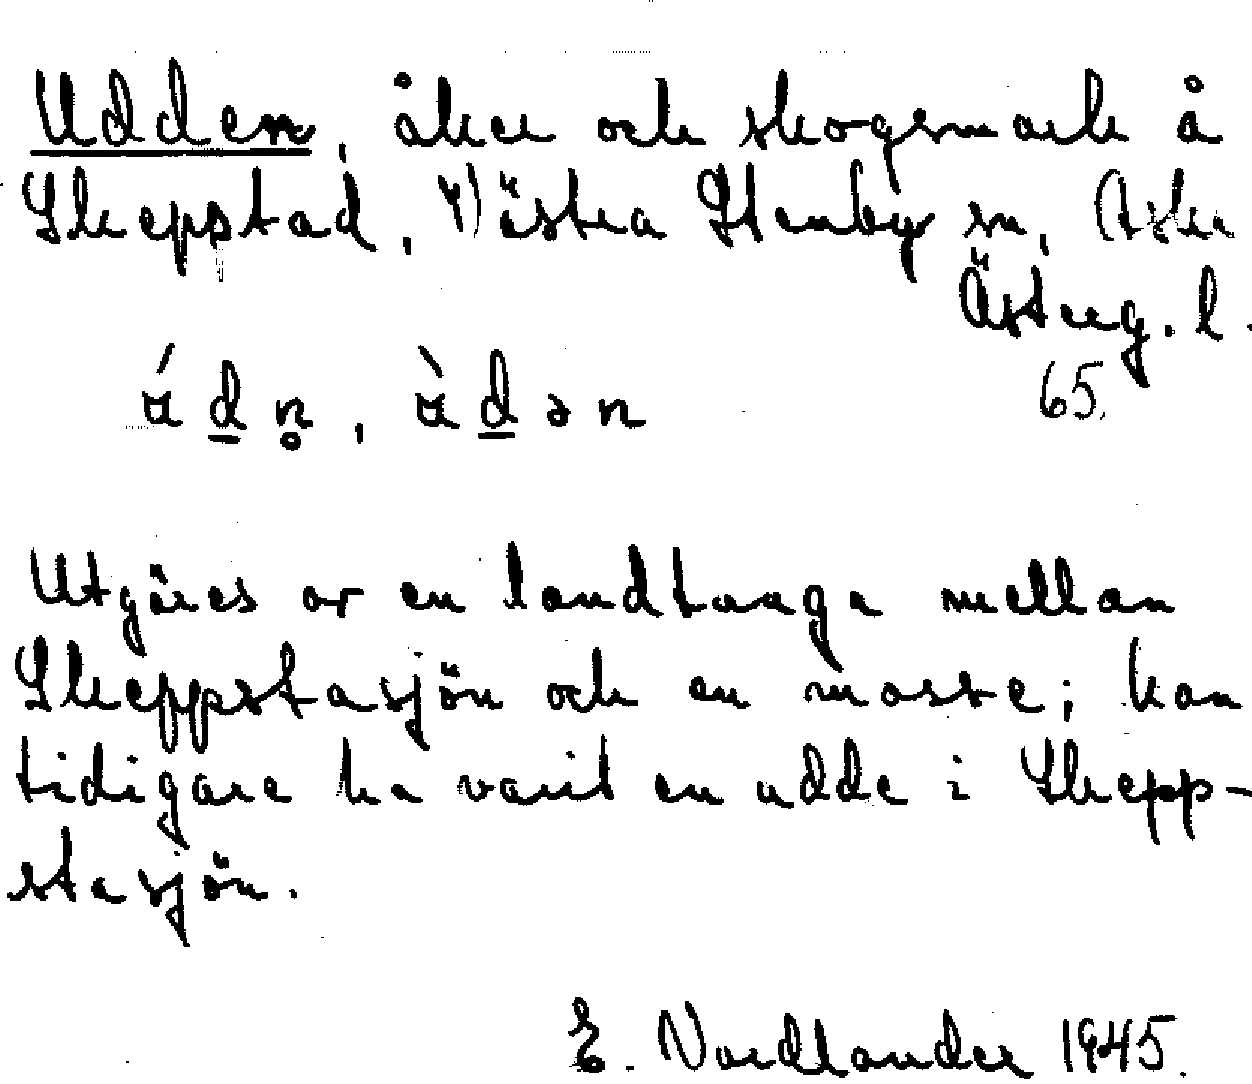 Udden, åker och skogsmark å
Skeppstad, Västra Stenby sn, Aska
Österg. l.
65.
ú d n̥, ù d ə n
Utgöres av en landtunga mellan
Skeppstasjön och en mosse; kan
tidigare ha varit en udde i Skepp-
stasjön.
E. Nordlander 1945.